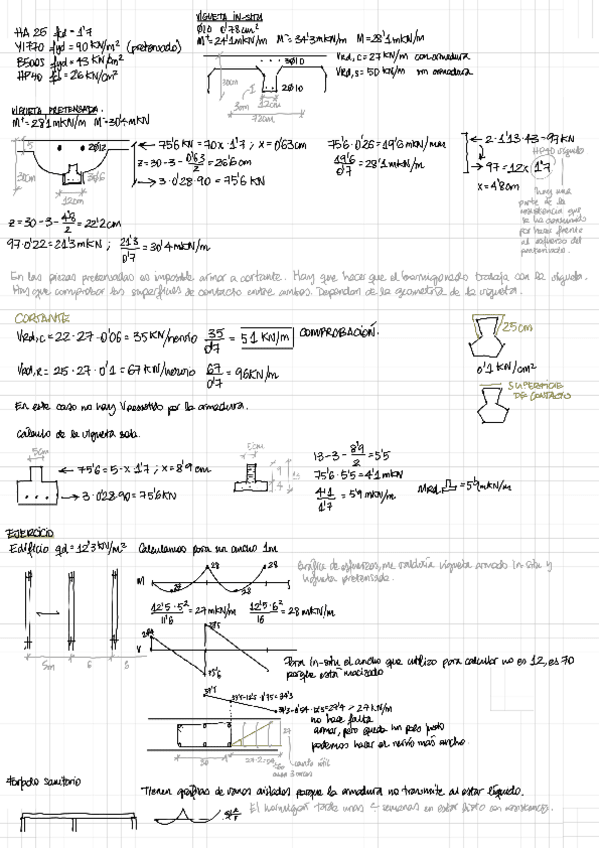 VIGUETA IN-SITU
HA 25 fcd = 1'7
Y1770 fyd = 90 KN/m² (pretensado)
B500S fyd = 43 KN/cm²
HP40 fcd = 26 KN/cm²
Ø10 0'78cm²
M⁺ = 24'1mKN/m M⁻ = 34'3mKN/m M = 28'1mKN/m
3Ø10
2Ø10
30cm
3cm
12cm
72cm
Vrd,c = 27 KN/m con armadura
Vrd,s = 50 KN/m sin armadura
VIGUETA PRETENSADA.
M⁺ = 28'1mKN/m
5
2Ø12
3Ø6
30cm
12cm
75'6 KN = 70x·1'7 ; x = 0'63cm
z = 30 - 3 - 0'63/2 = 26'6cm
3·0'28·90 = 75'6 KN
75'6·0'26 = 19'6 mKN/nerv
19'6/0'7 = 28'1 mKN/m
2·1'13·43 = 97KN
97 = 12x 1'7
x = 4'8cm
HP40 seguido
hay una
parte de la
resistencia que
se ha consumido
por hacer frente
al esfuerzo del
pretensado.
z = 30 - 3 - 4'8/2 = 22'2cm
97·0'22 = 21'3mKN ; 21'3/0'7 = 30'4mKN/m
En las piezas pretensadas es imposible armar a cortante. Hay que hacer que el hormigonado trabaje con la vigueta.
Hay que comprobar las superficies de contacto entre ambos. Dependen de la geometría de la vigueta.
CORTANTE
Vrd,c = 22·27·0'06 = 35 KN/nervio 35/0'7 = 51 KN/m COMPROBACIÓN.
25cm
0'1 KN/cm²
Vrd,R = 25·27·0'1 = 67 KN/nervio 67/0'7 = 96KN/m
SUPERFICIE
DE CONTACTO
En este caso no hay V resistido por la armadura.
Cálculo de la vigueta sola.
5cm
75'6 = 5·x 1'7 ; x = 8'9 cm
3·0'28·90 = 75'6KN
5cm
9
4
13 - 3 - 8'9/2 = 5'5
75'6·5'5 = 4'1mKN
4'1/0'7 = 5'9 mKN/m
MRd = 5'9mKN/m
EJERCICIO
Edificio qd = 12'3 KN/m² Calculamos para un ancho 1m
Gráfica de esfuerzos, me valdría vigueta armado in-situ y
vigueta pretensada.
M
28
28
27
28
12'5·5²/11'6 = 27mKN/m 12'5·6²/16 = 28 mKN/m
V
5m
6
Para in-situ el ancho que utilizo para calcular no es 12, es 70
porque está macizado
no hace falta
armar, pero queda un poco justo
podemos hacer el nervio más ancho.
27
30
canto útil
Forjado sanitario
Tienen gráficas de vanos aislados porque la armadura no transmite al estar líquido.
El hormigón tarda unas 4 semanas en estar listo con resistencia.